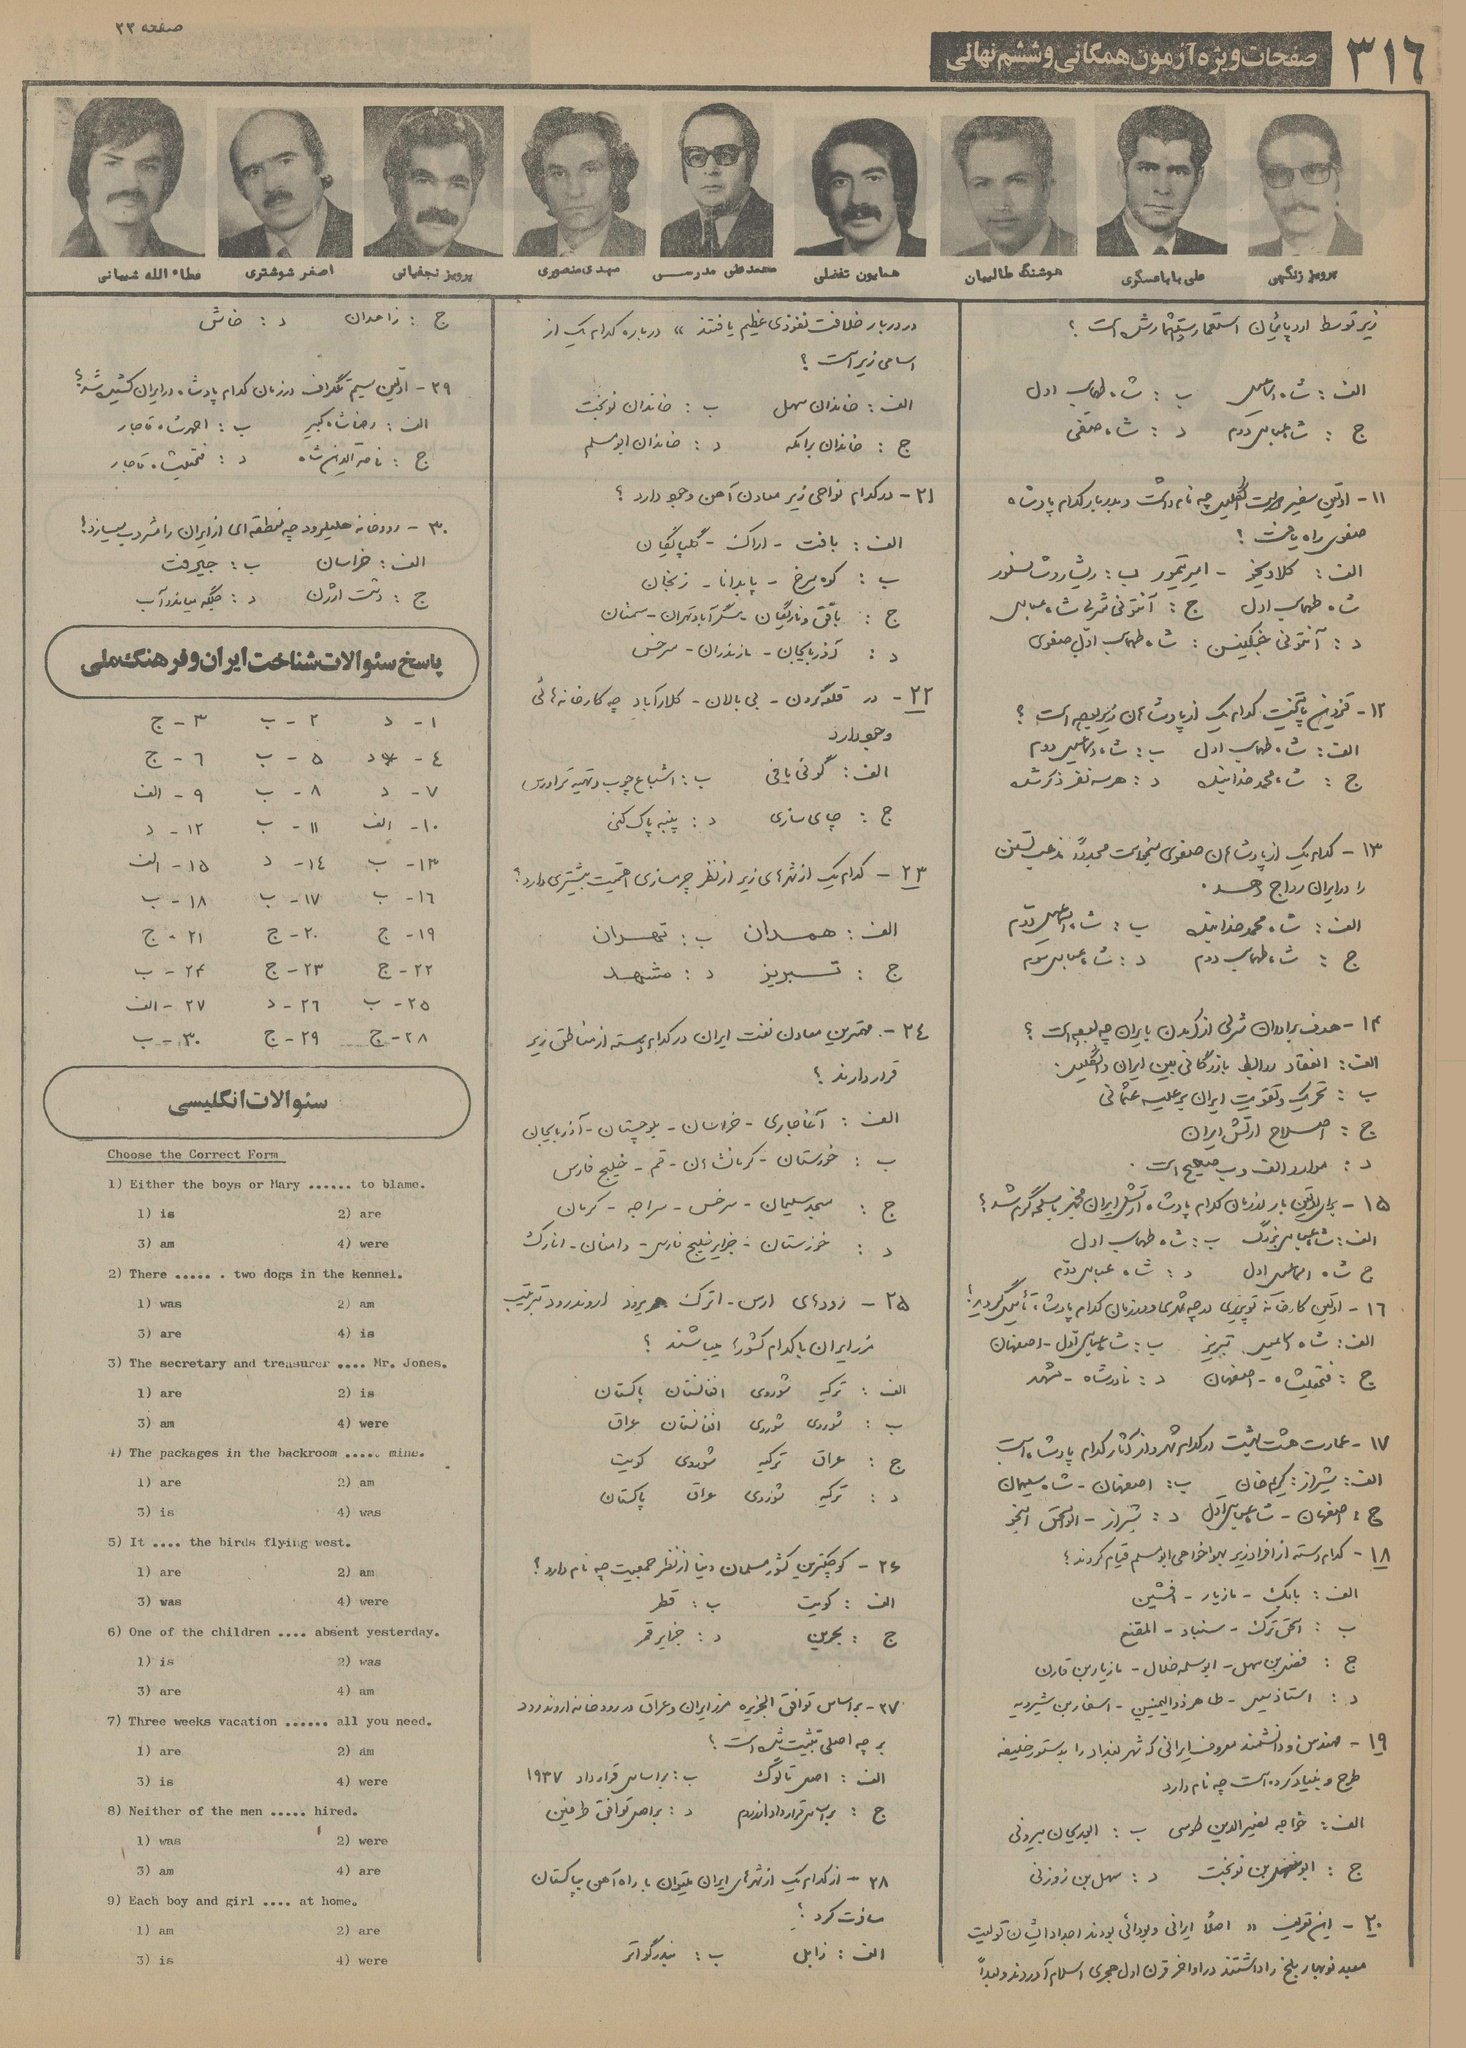 صفحه ۲۳
صفحات ویژه آزمون همگانی و ششم نهائی
۳۱۶
پرویز زنگهی
علی باباعسگری
هوشنگ طالبیان
همایون تفضلی
محمدعلی مدرسی
مهدی منصوری
پرویز نجفیانی
اصغر شوشتری
عطاء الله شیبانی
زیر توسط اروپائیان استعمار و استثمارش است ؟
الف : شاه اسماعیل ب : شاه طهماسب اول
ج : شاه عباس دوم د : شاه صفی
۱۱- اولین سفیر انگلیس چه نام داشت و بدربار کدام پادشاه
صفوی راه یافت ؟
شاه طهماسب اول ج : آنتونی شرلی شاه عباس
د : آنتونی جنکینسن : شاه طهماسب اول صفوی
۱۲- قزوین پایتخت کدام یک از پادشاهان زیر بوده است ؟
الف : شاه طهماسب اول ب : شاه اسماعیل دوم
ج : شاه محمد خدابنده د : هر سه نفر ذکر شده
۱۳- کدام یک از پادشاهان صفوی میخواست مجدداً مذهب تسنن
را در ایران رواج دهد .
الف : شاه محمد خدابنده ب : شاه اسماعیل دوم
ج : شاه طهماسب دوم د : شاه عباس سوم
۱۴- هدف برادران شرلی از آمدن بایران چه بوده است ؟
الف : انعقاد روابط بازرگانی بین ایران و انگلیس
ب : تحریک و تقویت ایران بر علیه عثمانی
ج : اصلاح ارتش ایران
د : موارد الف و ب صحیح است .
۱۵- برای اولین بار در زمان کدام پادشاه ارتش ایران مجهز باسلحه گرم شد ؟
الف : شاه عباس بزرگ ب : شاه طهماسب اول
ج شاه اسماعیل اول د : شاه عباس دوم
۱۶- اولین کارخانه توپریزی در چه شهری و در زمان کدام پادشاه تأسیس گردید ؟
الف : شاه اسماعیل تبریز ب : شاه عباس اول - اصفهان
ج : فتحعلیشاه - اصفهان د : نادرشاه - مشهد
۱۷- عمارت هشت بهشت در کدام شهر و از آثار کدام پادشاه است
الف : شیراز : کریم خان ب : اصفهان - شاه سلیمان
ج : اصفهان - شاه عباس اول د : شیراز - ابواسحق اینجو
۱۸- کدام دسته از افراد زیر بهواخواهی ابومسلم قیام کردند ؟
الف : بابک - مازیار - افشین
ب : اسحق ترک - سنباد - المقنع
ج : فضل بن سهل - ابوسلمه خلال - مازیار بن قارن
د : استاذسیس - طاهر ذوالیمینین - اسفار بن شیرویه
۱۹- مهندس و دانشمند معروف ایرانی که شهر بغداد را بدستور خلیفه
طرح و بنیاد کرده است چه نام دارد
الف : خواجه نصیرالدین طوسی ب : ابوریحان بیرونی
ج : ابوسهل بن نوبخت د : سهل بن زوزنی
۲۰- این تعریف « اصلاً ایرانی و بودائی بودند اجداد ایشان تولیت
معبد نوبهار بلخ را داشتند در اواخر قرن اول هجری اسلام آوردند و بعداً
در دربار خلافت نفوذی عظیم یافتند » درباره کدام یک از
اسامی زیر است ؟
الف : خاندان سهل ب : خاندان نوبخت
ج : خاندان برامکه د : خاندان ابومسلم
۲۱- در کدام نواحی زیر معادن آهن وجود دارد ؟
الف : بافت - اراک - گلپایگان
ب : کوه سرخ - پابدانا - زنجان
د : آذربایجان - مازندران - سرخس
۲۲- در قلعه گردن - بی بالان - کلارآباد چه کارخانه هائی
وجود دارد
الف : گونی بافی ب : اشباع چوب و تهیه تراورس
ج : چای سازی د : پنبه پاک کنی
۲۳- کدام یک از شهرهای زیر از نظر چرمسازی اهمیت بیشتری دارد ؟
الف : همدان ب : تهران
ج : تبریز د : مشهد
۲۴- مهمترین معادن نفت ایران در کدام دسته از مناطق زیر
قرار دارند ؟
الف : آغاجاری - خراسان - بلوچستان - آذربایجان
ب : خوزستان - کرمانشاهان - قم - خلیج فارس
ج : مسجد سلیمان - سرخس - سراجه - کرمان
د : خوزستان - جزایر خلیج فارس - دامغان - انارک
۲۵- رودهای ارس - اترک هریرود اروندرود بترتیب
مرز ایران با کدام کشورها میباشند ؟
الف : ترکیه شوروی افغانستان پاکستان
ب : شوروی شوروی افغانستان عراق
ج : عراق ترکیه شوروی کویت
د : ترکیه شوروی عراق پاکستان
۲۶- کوچکترین کشور مسلمان دنیا از نظر جمعیت چه نام دارد ؟
الف : کویت ب : قطر
ج : بحرین د : جزایر قمر
۲۷- براساس توافق الجزیره مرز ایران و عراق در رودخانه اروندرود
بر چه اصلی تثبیت شده است ؟
الف : اصل تالوگ ب : براساس قرارداد ۱۹۳۷
ج : براساس قرارداد ارزروم د : براصل توافق طرفین
۲۸- از کدام یک از شهرهای ایران میتوان با راه آهن بپاکستان
مسافرت کرد ؟
الف : زابل ب : بندرگواتر
ج : زاهدان د : خاش
۲۹- اولین سیم تلگراف در زمان کدام پادشاه در ایران کشیده شد ؟
الف : رضاشاه کبیر ب : احمدشاه قاجار
ج : ناصرالدین شاه د : فتحعلیشاه قاجار
۳۰- رودخانه هلیلرود چه منطقه ای از ایران را مشروب میسازد ؟
الف : خراسان ب : جیرفت
ج : دشت ارژن د : جلگه میاندرآب
پاسخ سئوالات شناخت ایران و فرهنگ ملی
۱- د ۲- ب ۳- ج
۴- د ۵- ب ۶- ج
۷- د ۸- ب ۹- الف
۱۰- الف ۱۱- ب ۱۲- د
۱۳- ب ۱۴- د ۱۵- الف
۱۶- ب ۱۷- ب ۱۸- ب
۱۹- ج ۲۰- ج ۲۱- ج
۲۲- ج ۲۳- ج ۲۴- ب
۲۵- ب ۲۶- د ۲۷- الف
۲۸- ج ۲۹- ج ۳۰- ب
سئوالات انگلیسی
Choose the Correct Form
1) Either the boys or Mary ...... to blame.
1) is 2) are
3) am 4) were
2) There ..... . two dogs in the kennel.
1) was 2) am
3) are 4) is
3) The secretary and treasurer .... Mr. Jones.
1) are 2) is
3) am 4) were
4) The packages in the backroom ..... mine.
1) are 2) am
3) is 4) was
5) It .... the birds flying west.
1) are 2) am
3) was 4) were
6) One of the children .... absent yesterday.
1) is 2) was
3) are 4) am
7) Three weeks vacation ...... all you need.
1) are 2) am
3) is 4) were
8) Neither of the men ..... hired.
1) was 2) were
3) am 4) are
9) Each boy and girl .... at home.
1) am 2) are
3) is 4) were